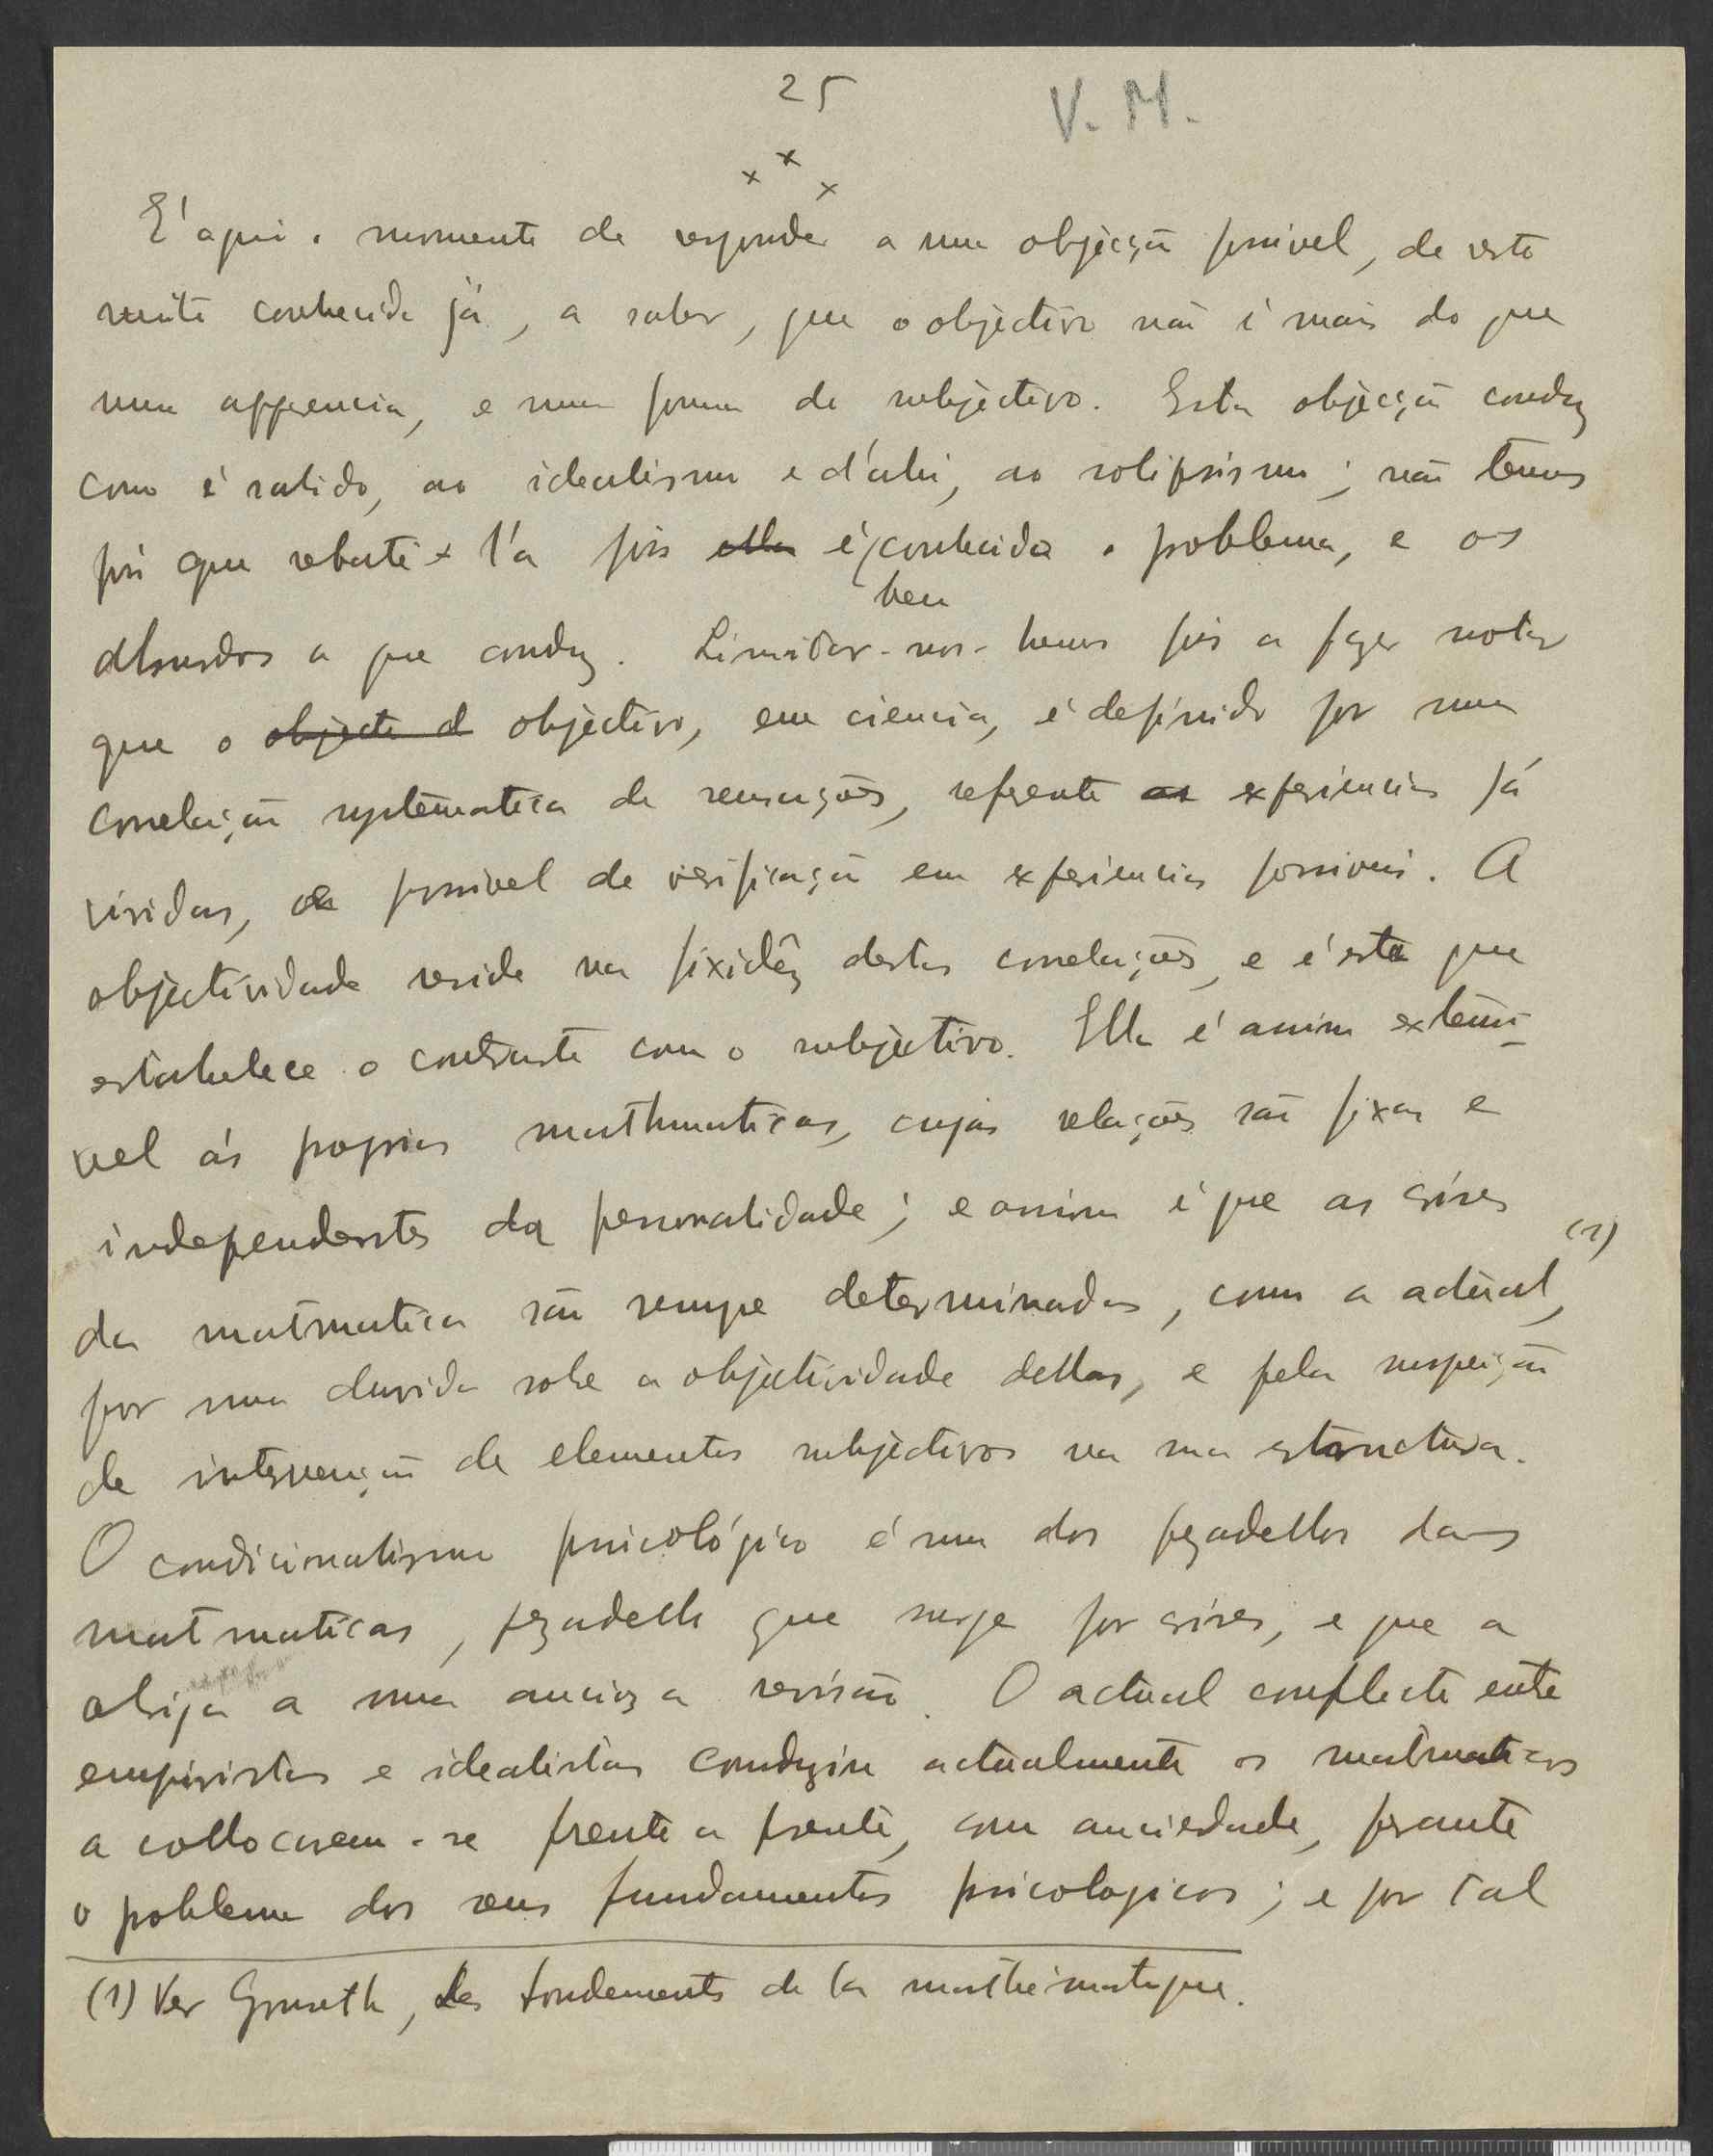 25
V. M.
x x x
E' aqui o momento de responder a uma objecção possivel, de resto
muito conhecida já, a saber, que o objectivo não é mais do que
uma apparencia, e uma forma de subjectivo. Esta objecção conduz
como é sabido, ao idealismo e d'ahi, ao solipsismo; não temos
pois que rebatê-la pois ella é conhecido o problema, e os
bem
absurdos a que conduz. Limitar-nos-hemos pois a fazer notar
que o objecto d objectivo, em ciencia, é definido por uma
correlação systematica de sensações, referente as experiencias já
vividas, ou possivel de verificação em experiencias possiveis. A
objectividade reside na fixidêz destas correlações, e é esta que
estabelece o contraste com o subjectivo. Ella é assim extensi-
vel ás proprias mathematicas, cujas relações são fixas e
independentes da personalidade; e assim é que as crises
da matmatica são sempre determinadas, como a actual, (1)
por uma duvida sobre a objectividade dellas, e pela suspeição
de intervenção de elementos subjectivos na sua estructura.
O condicionalismo psicológico é um dos pezadellos das
matmaticas, pezadello que surge por crises, e que a
obriga a uma anciosa revisão. O actual conflicto entre
empiristas e idealistas conduziu actualmente os matmaticos
a collocarem-se frente a frente, com anciedade, perante
o problema dos seus fundamentos psicologicos; e por tal
(1) Ver Gonseth, Les fondements de la mathématique.